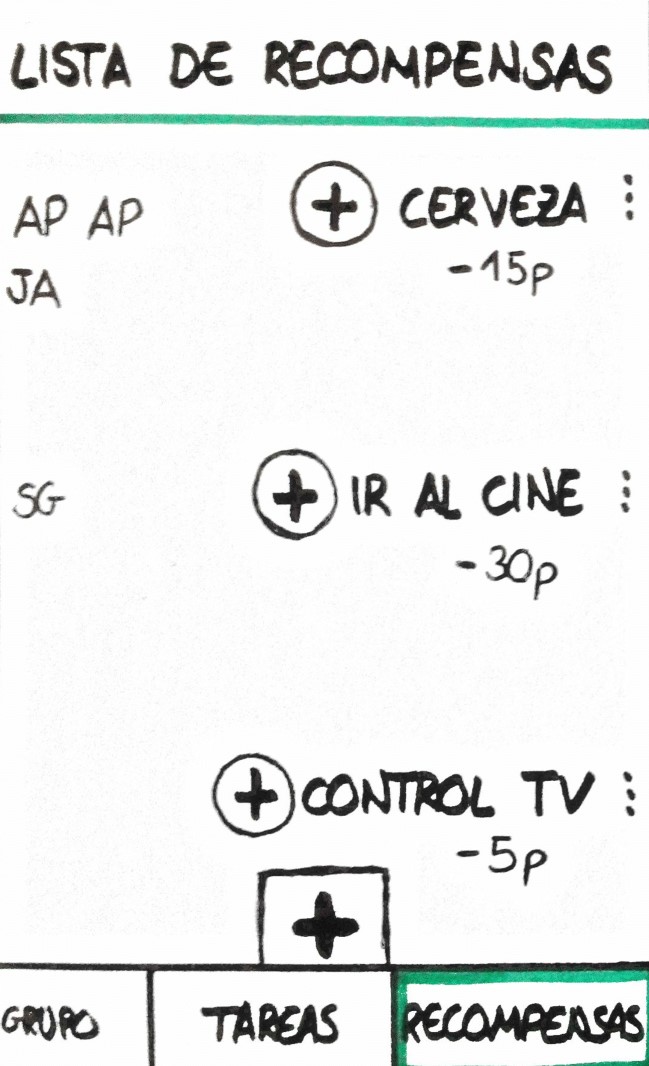 LISTA DE RECOMPENSAS
AP AP + CERVEZA
JA -15p
SG + IR AL CINE
-30p
+ CONTROL TV
-5p
+
GRUPO TAREAS RECOMPENSAS